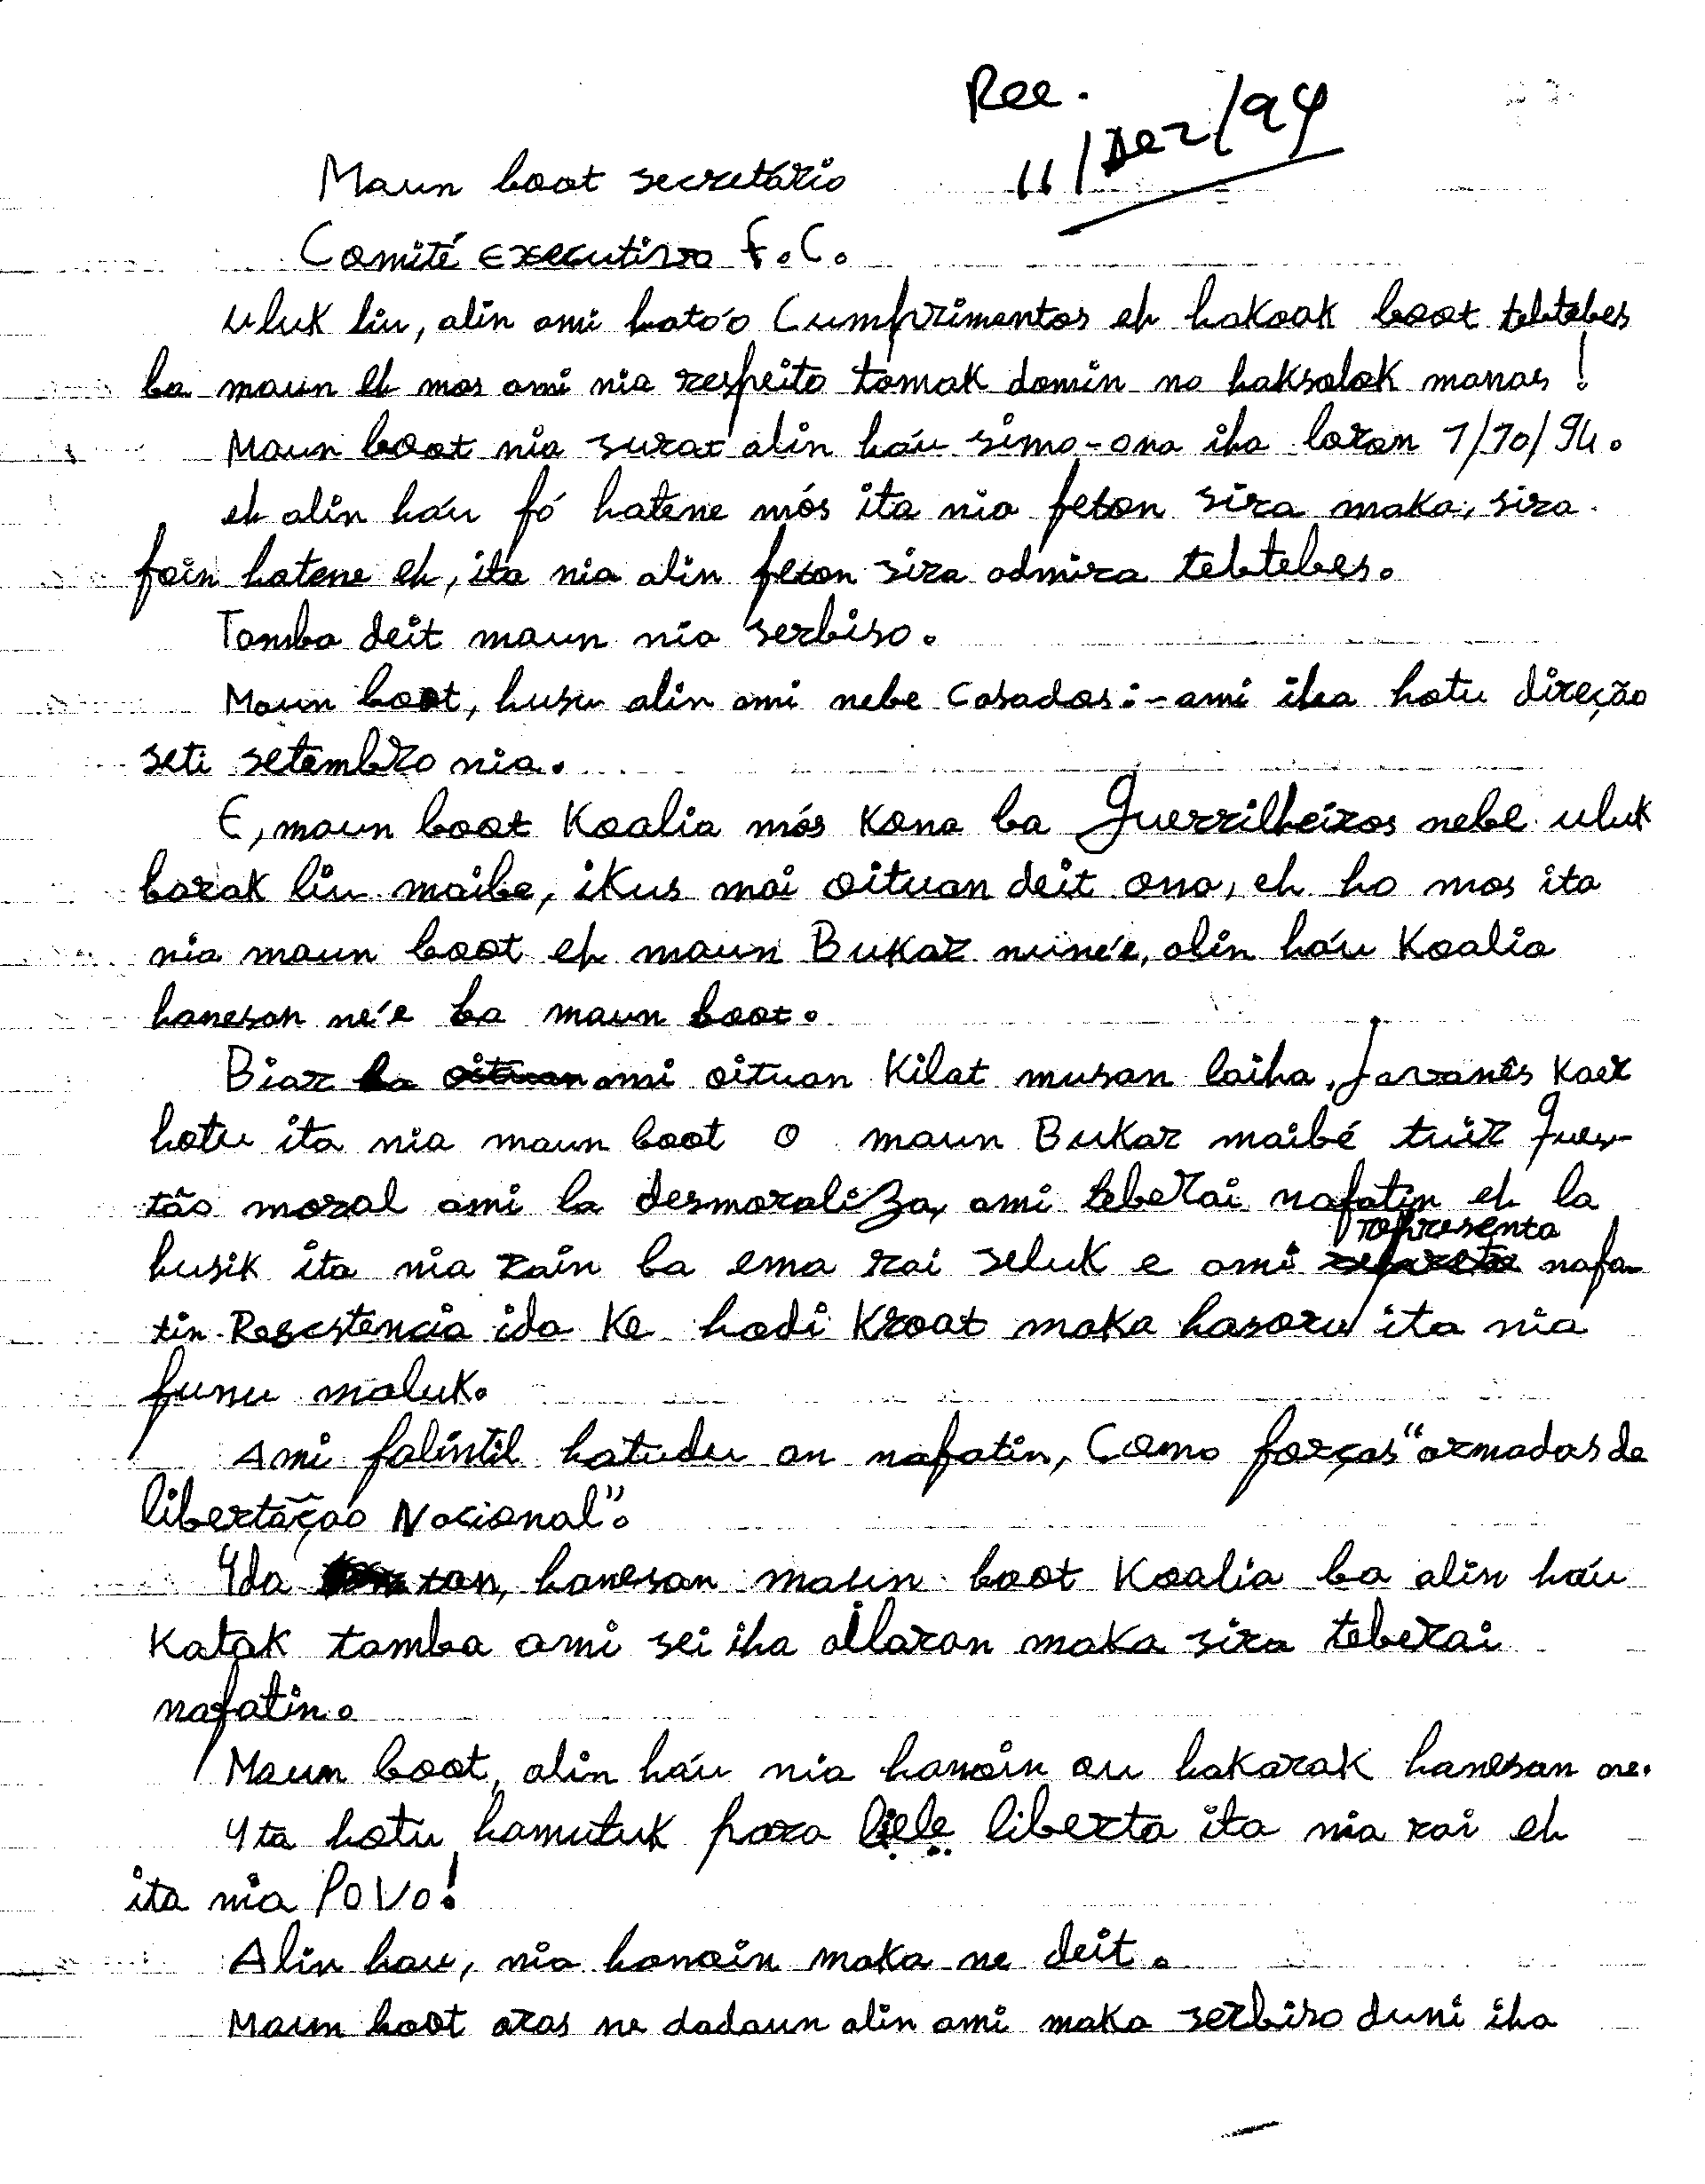 Rec.
11/Dez/94
Maun boot secretário
Comité Executivo F.C.
Uluk liu, alin ami hato'o Cumprimentos eh hakoak boot tebtebes
ba maun eh mos ami nia respeito tomak domin no haksolok manas!
Maun boot nia surat alin háu simo-ona iha loron 7/10/94.
eh alin háu fó hatene mós ita nia feton sira maka, sira
foin hatene eh, ita nia alin feton sira admira tebtebes.
Tamba deit maun nia serbiso.
Maun boot, husu alin ami nebe Casados:-ami iha hotu direção
seti setembro nia.
E, maun boot Koalia mós Kona ba Guerrilheiros nebe uluk
barak liu maibe, ikus mai oituan deit ona, eh ho mos ita
nia maun boot eh maun Bukar nuine'e, alin háu Koalia
hanesan ne'e ba maun boot.
Biar ba oituan ami oituan Kilat musan laiha, Javanês Kaer
hotu ita nia maun boot o maun Bukar maibé tuir Ques-
tão moral ami la desmoraliza, ami teberai nafatin eh la
husik ita nia rain ba ema rai seluk e ami representa nafa-
tin Resistencia ida Ke hodi Kroat maka hasoru ita nia
funu maluk.
Ami falintil hatudu an nafatin, Como forças "armadas de
libertação Nacional".
Yda tan, hanesan maun boot Koalia ba alin háu
Katak tamba ami sei iha ailaran maka sira teberai
nafatin.
Maun boot, alin háu nia hanoin ou hakarak hanesan ne.
Yta hotu hamutuk para bele liberta ita nia rai eh
ita nia Povo!
Alin hau, nia hanoin maka ne deit.
Maun boot oras ne dadaun alin ami maka serbiso duni iha